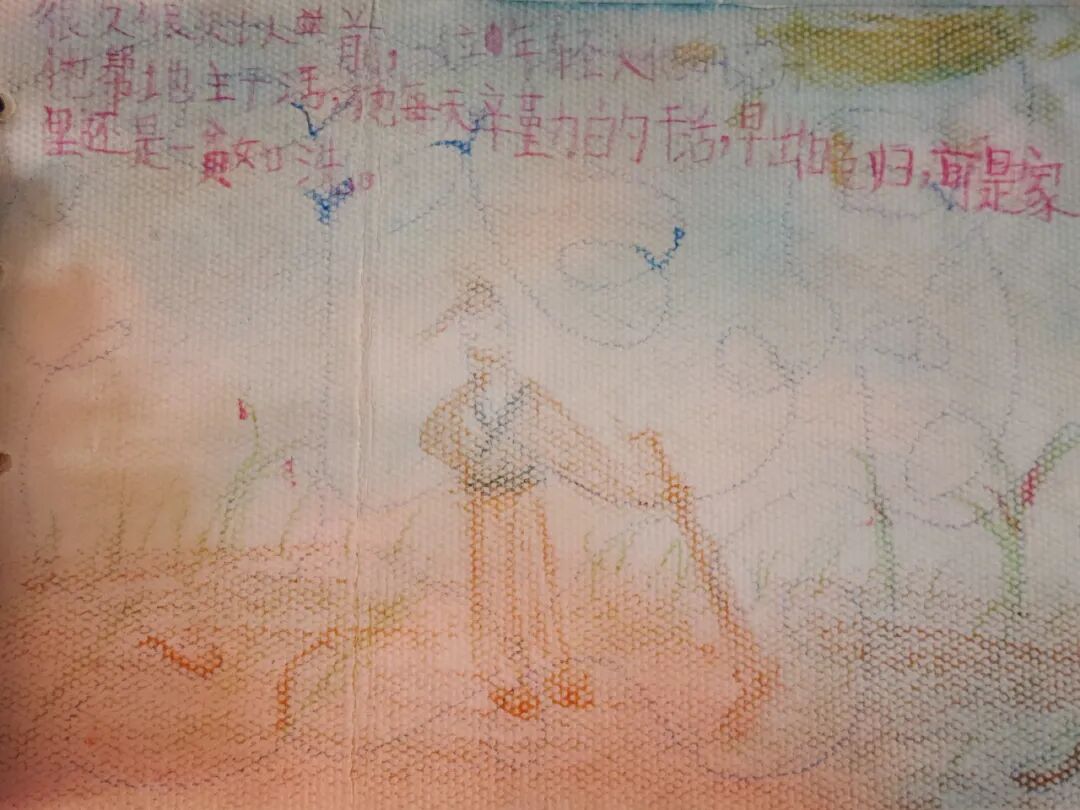 很久很久以前，一位年轻人
他帮地主干活，他每天辛勤的干活，早出晚归，可是家
里还是一贫如洗。